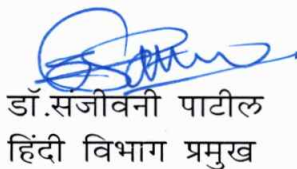 डॉ.संजीवनी पाटील
हिंदी विभाग प्रमुख